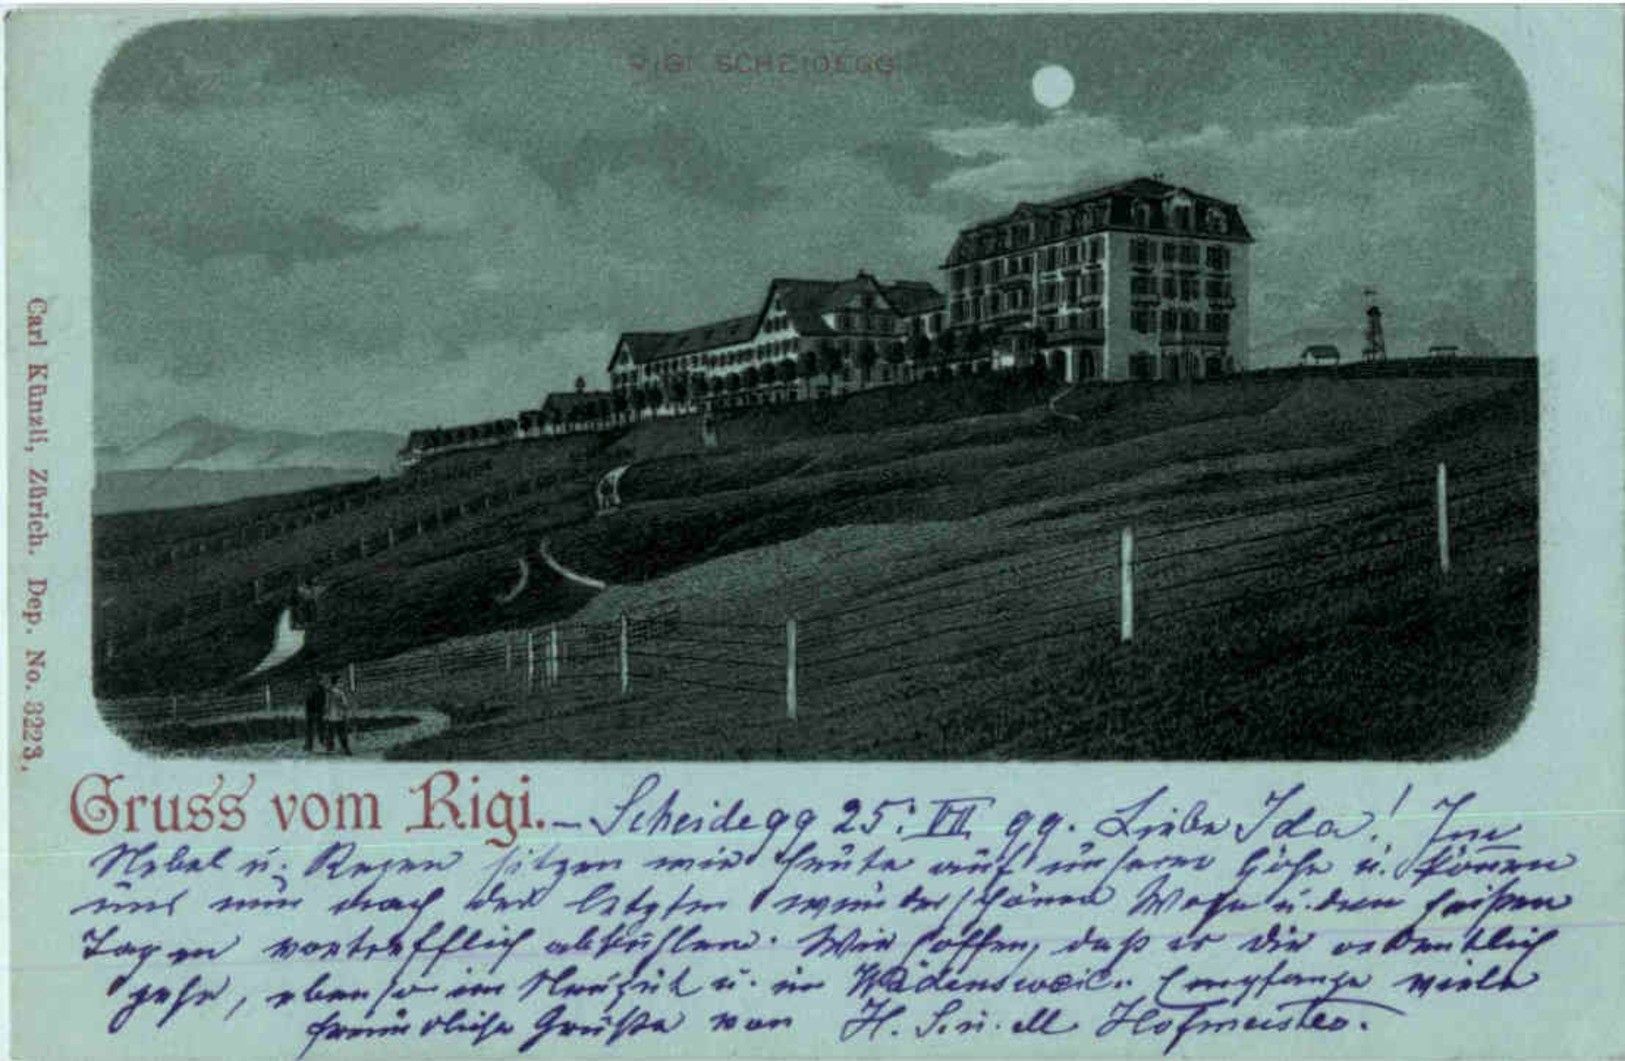 RIGI SCHEIDEGG
Carl Künzli, Zürich. Dep. No. 3223.
Gruss vom Rigi. – Scheidegg 25. VII 99. Liebe Ida! Im
Nebel u. Regen sitzen wir heute auf unserer Höhe u. können
uns nun nach der letzten wunderschönen Woche u. den heißen
Tagen vortrefflich abkühlen. Wir hoffen, daß es dir ordentlich
gehe, ebenso im u. in Wädensweil. Empfange viele
freundliche Grüße von H. S. u. M Hofmeister.